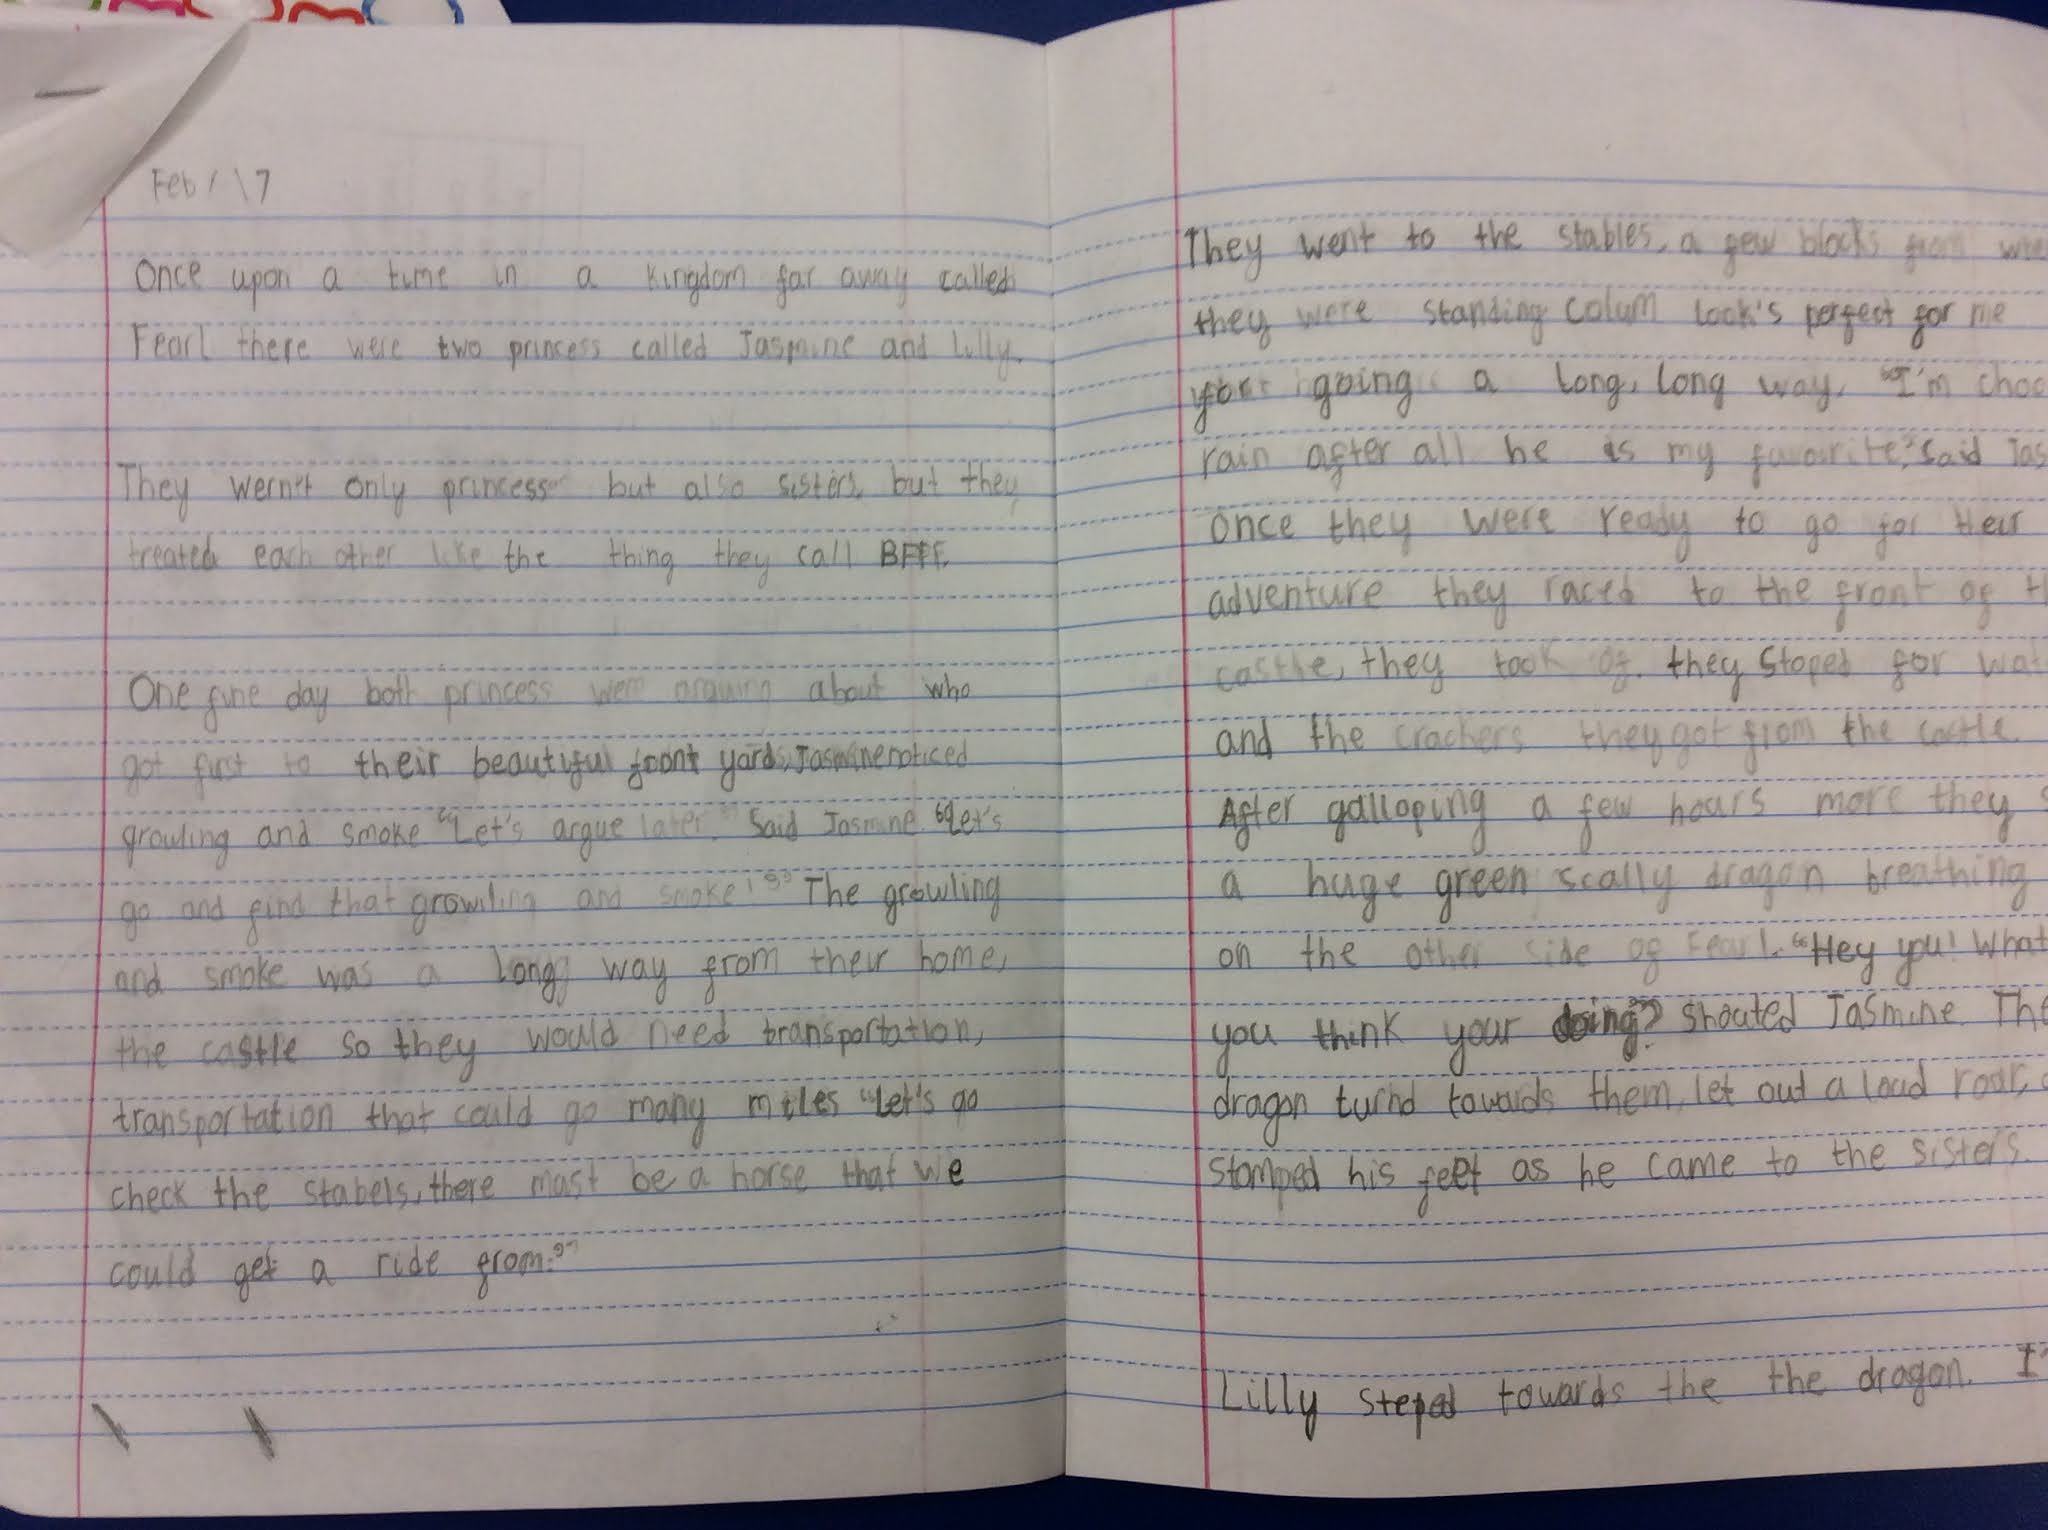 Feb / 17
Once upon a time in a kingdom far away called
Fearl there were two princess called Jasmine and Lilly.
They wernt only princess but also sisters, but they
treated each other like the thing they call BFFF.
One fine day both princess were arguing about who
got first to their beautiful front yards, Jasmine noticed
growling and smoke "Let's argue later." Said Jasmine. "Let's
go and find that growling and smoke!" The growling
and smoke was a long way from their home,
the castle so they would need transportation,
transportation that could go many miles "Let's go
check the stabels, there mast be a horse that we
could get a ride from."
They went to the stables, a few blocks from
they were standing Colum look's perfect for me
going a long, long way. "I'm
rain after all he is my favorite." Said
once they were ready to go for their
adventure they raced to the front of
castle, they took of. they stoped for
and the crackers they got from the castle.
After galloping a few hours more they
a huge green scally dragon breathing
on the other side of Fearl. "Hey you! What
you think your doing?" Shouted Jasmine. The
dragon turnd towards them, let out a loud roar,
stomped his feet as he came to the sisters.
Lilly steped towards the the dragon.